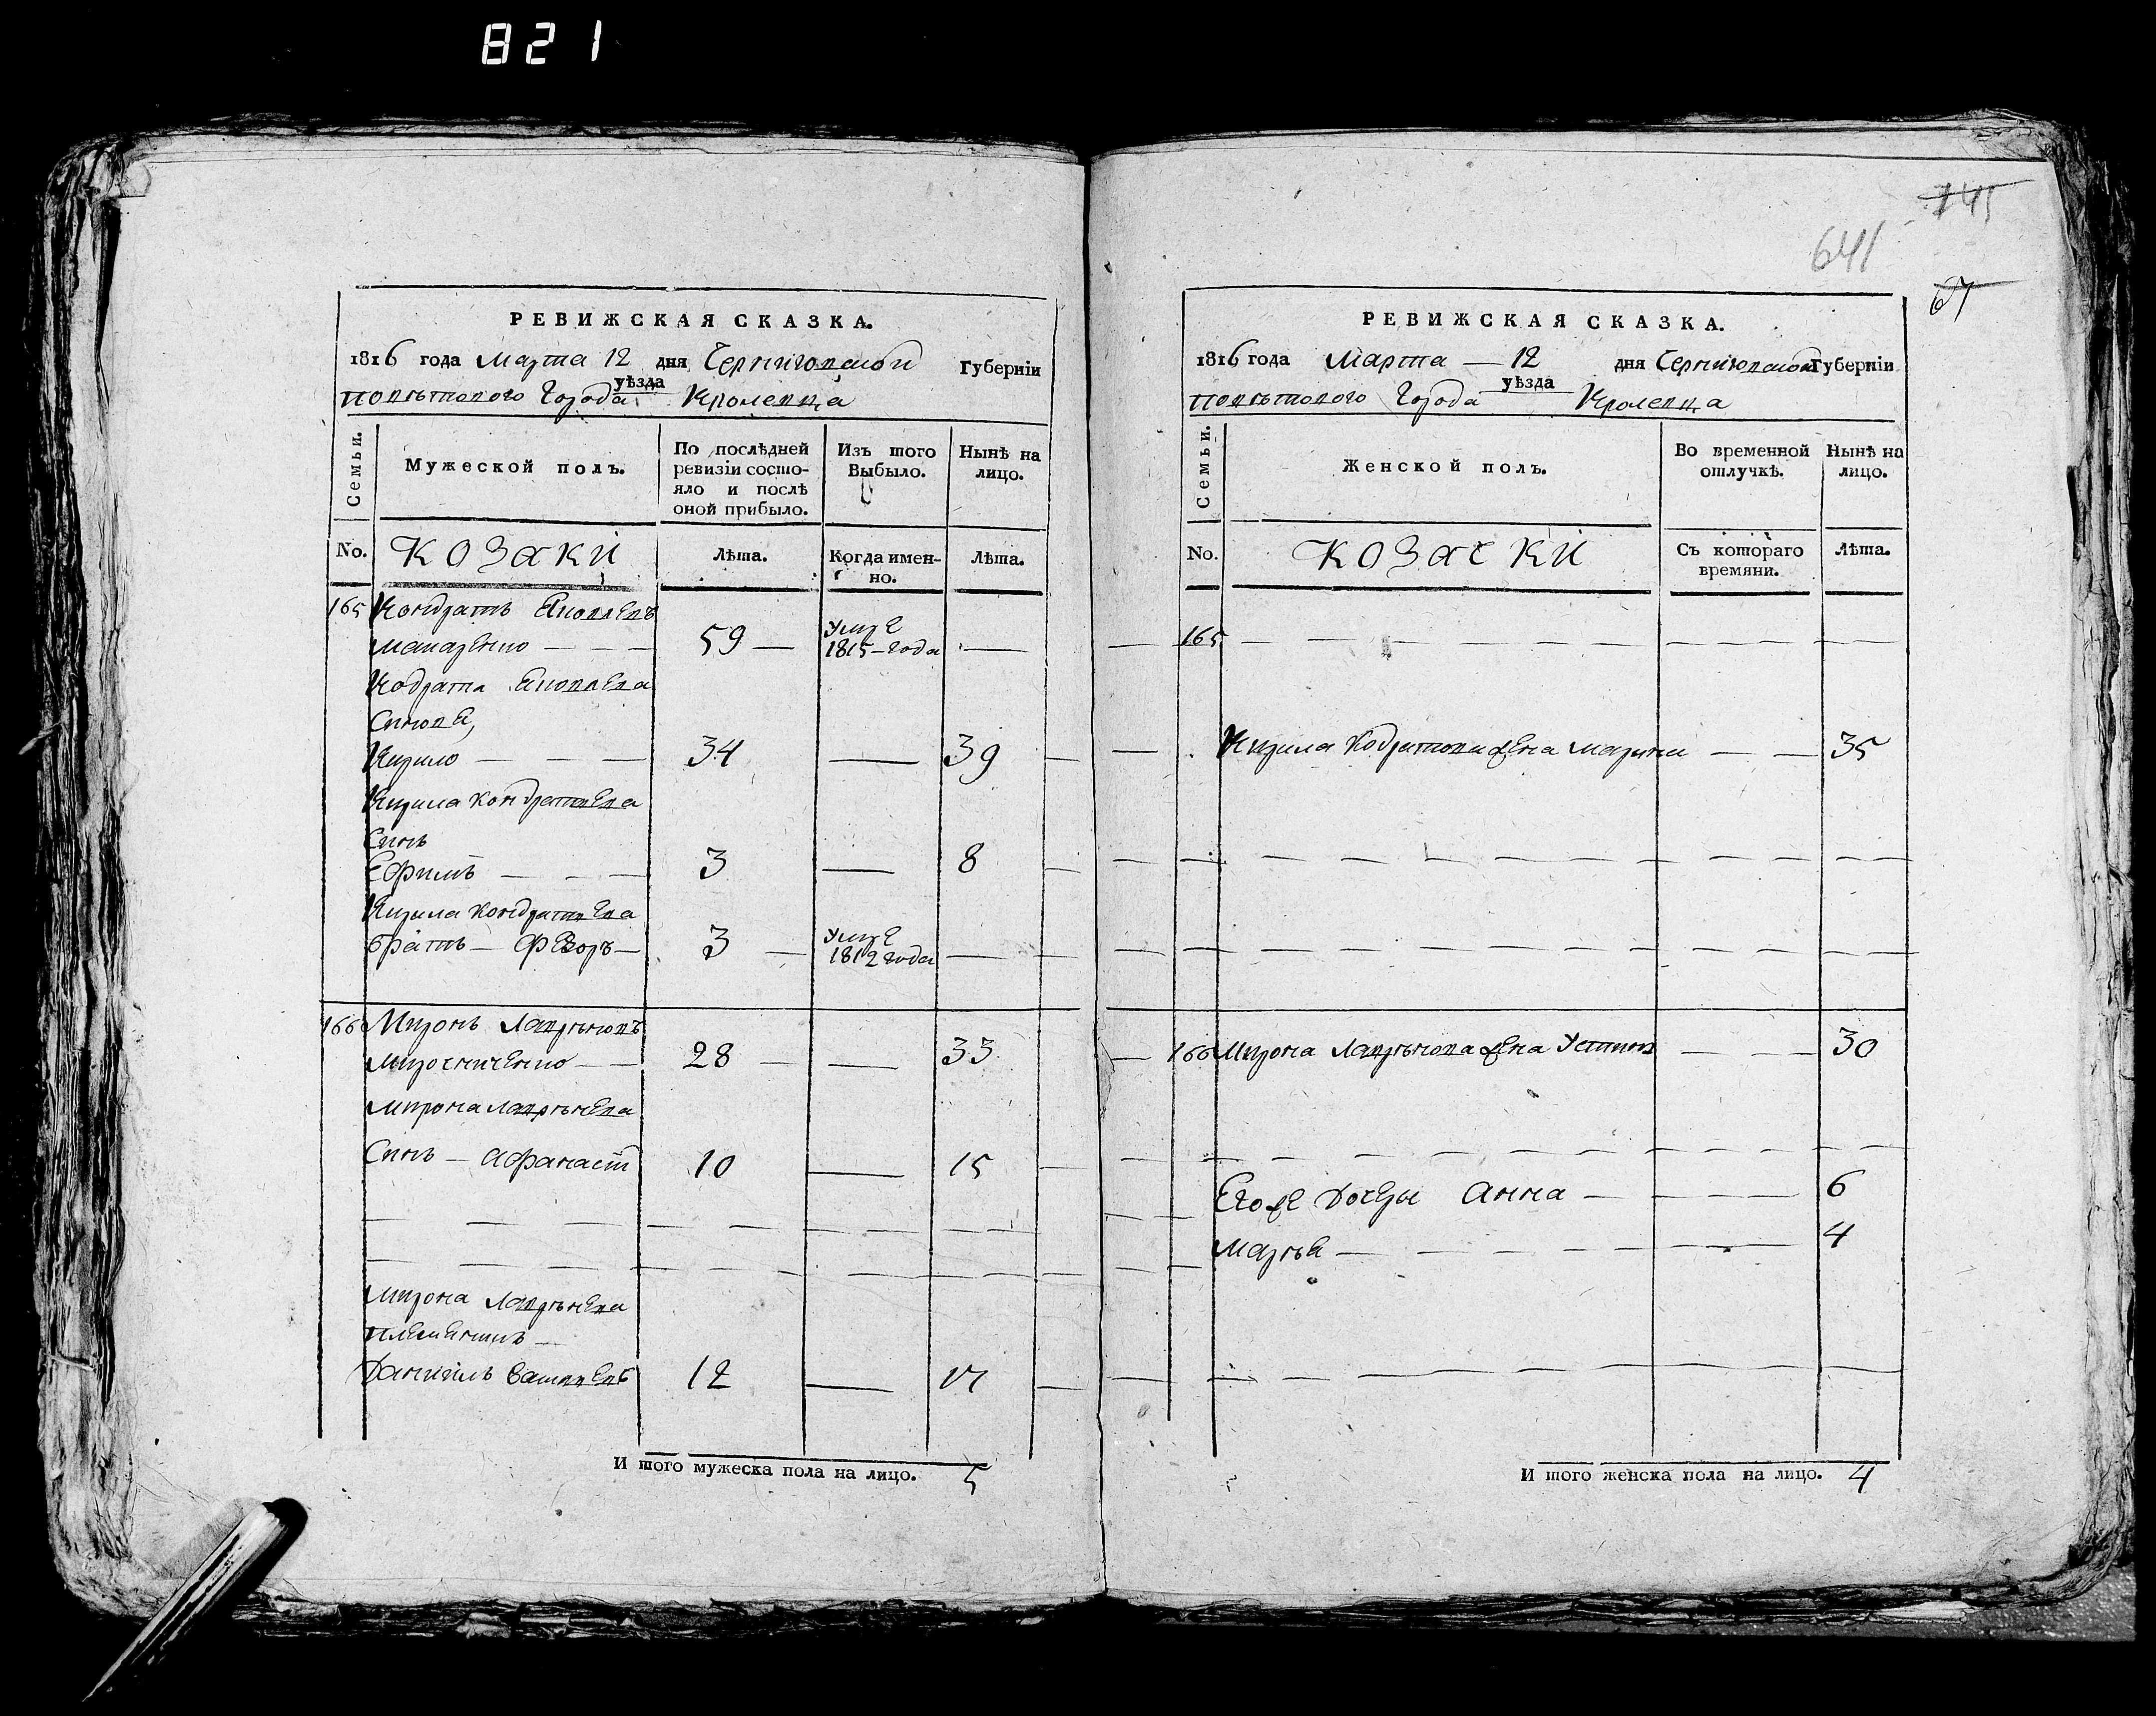 821
745
641
67
РЕВИЖСКАЯ СКАЗКА.
1816 года Марта 12 дня Черниговской Губерніи
поветового Города уѣзда Кролевца
Семьи.
Мужеской полъ.
По послѣдней ревизіи состояло и послѣ оной прибыло.
Изъ того Выбыло.
Нынѣ на лицо.
No. Козаки Лѣта. Когда именно. Лѣта.
165 Кондратъ Яковлевъ
Макаренко — — — 59 — Умре 1815-года —
Кодрата Яковлева
Синове,
Кирило — — — 34 — 39
Кирила Кондратвева
Синъ
Ефимъ — — — 3 — 8
Кирила Кондратвева
братъ — Федоръ — 3 — Умре 1812 года —
166 Миронъ Лаврѣновъ
Мирочниченко — — 28 — — 33
Мирона Лаврѣнева
Синъ — Афанасій 10 — 15
Мирона Лаврѣнева
племенникъ —
Даниилъ 12 — 17
И того мужеска пола на лицо. 5
РЕВИЖСКАЯ СКАЗКА.
1816 года Марта — 12 дня Черниговской Губерніи
поветового Города уѣзда Кролевца
Семьи.
Женской полъ.
Во временной отлучкѣ.
Нынѣ на лицо.
No. Козачки Съ котораго времяни. Лѣта.
165 — — — —
Кирила Кодратова жена Марина — — 35
166 Мирона Лаврѣнова жена Устина — — 30
Его же Дочеры Анна — — — 6
Маря — — — 4
И того женска пола на лицо. 4